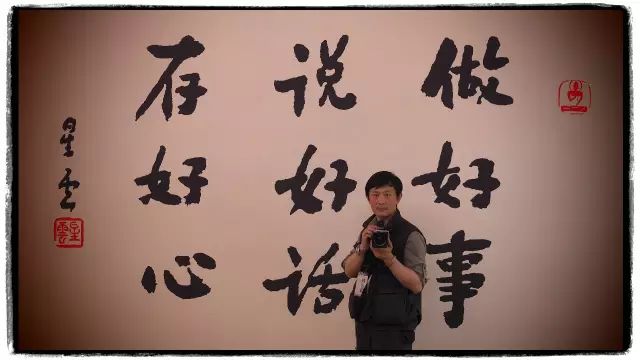 做好事
说好话
存好心
星雲
星雲